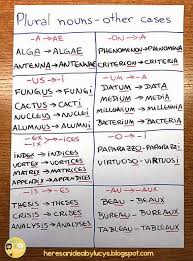 Plural nouns - other cases
-A → AE
ALGA → ALGAE
ANTENNA → ANTENNAE
-US → i
FUNGUS → FUNGi
CACTUS → CACTi
NUCLEUS → NUCLEi
ALUMNUS → ALUMNi
-EX
-iX → iCES
iNDEX → iNDiCES
VORTEX → VORTiCES
MATRiX → MATRiCES
APPENDiX → APPENDiCES
-iS → ES
THESiS → THESES
CRiSiS → CRiSES
ANALYSiS → ANALYSES
-ON → A
PHENOMENON → PHENOMENA
CRiTERiON → CRiTERiA
-UM → A
DATUM → DATA
MEDiUM → MEDiA
MiLLENNiUM → MiLLENNiA
BACTERiUM → BACTERiA
-O → i
PAPARAZZO → PAPARAZZi
ViRTUOSO → ViRTUOSi
-AU → AUX
BEAU → BEAUX
BUREAU → BUREAUX
TABLEAU → TABLEAUX
heresanideabylucys.blogspot.com